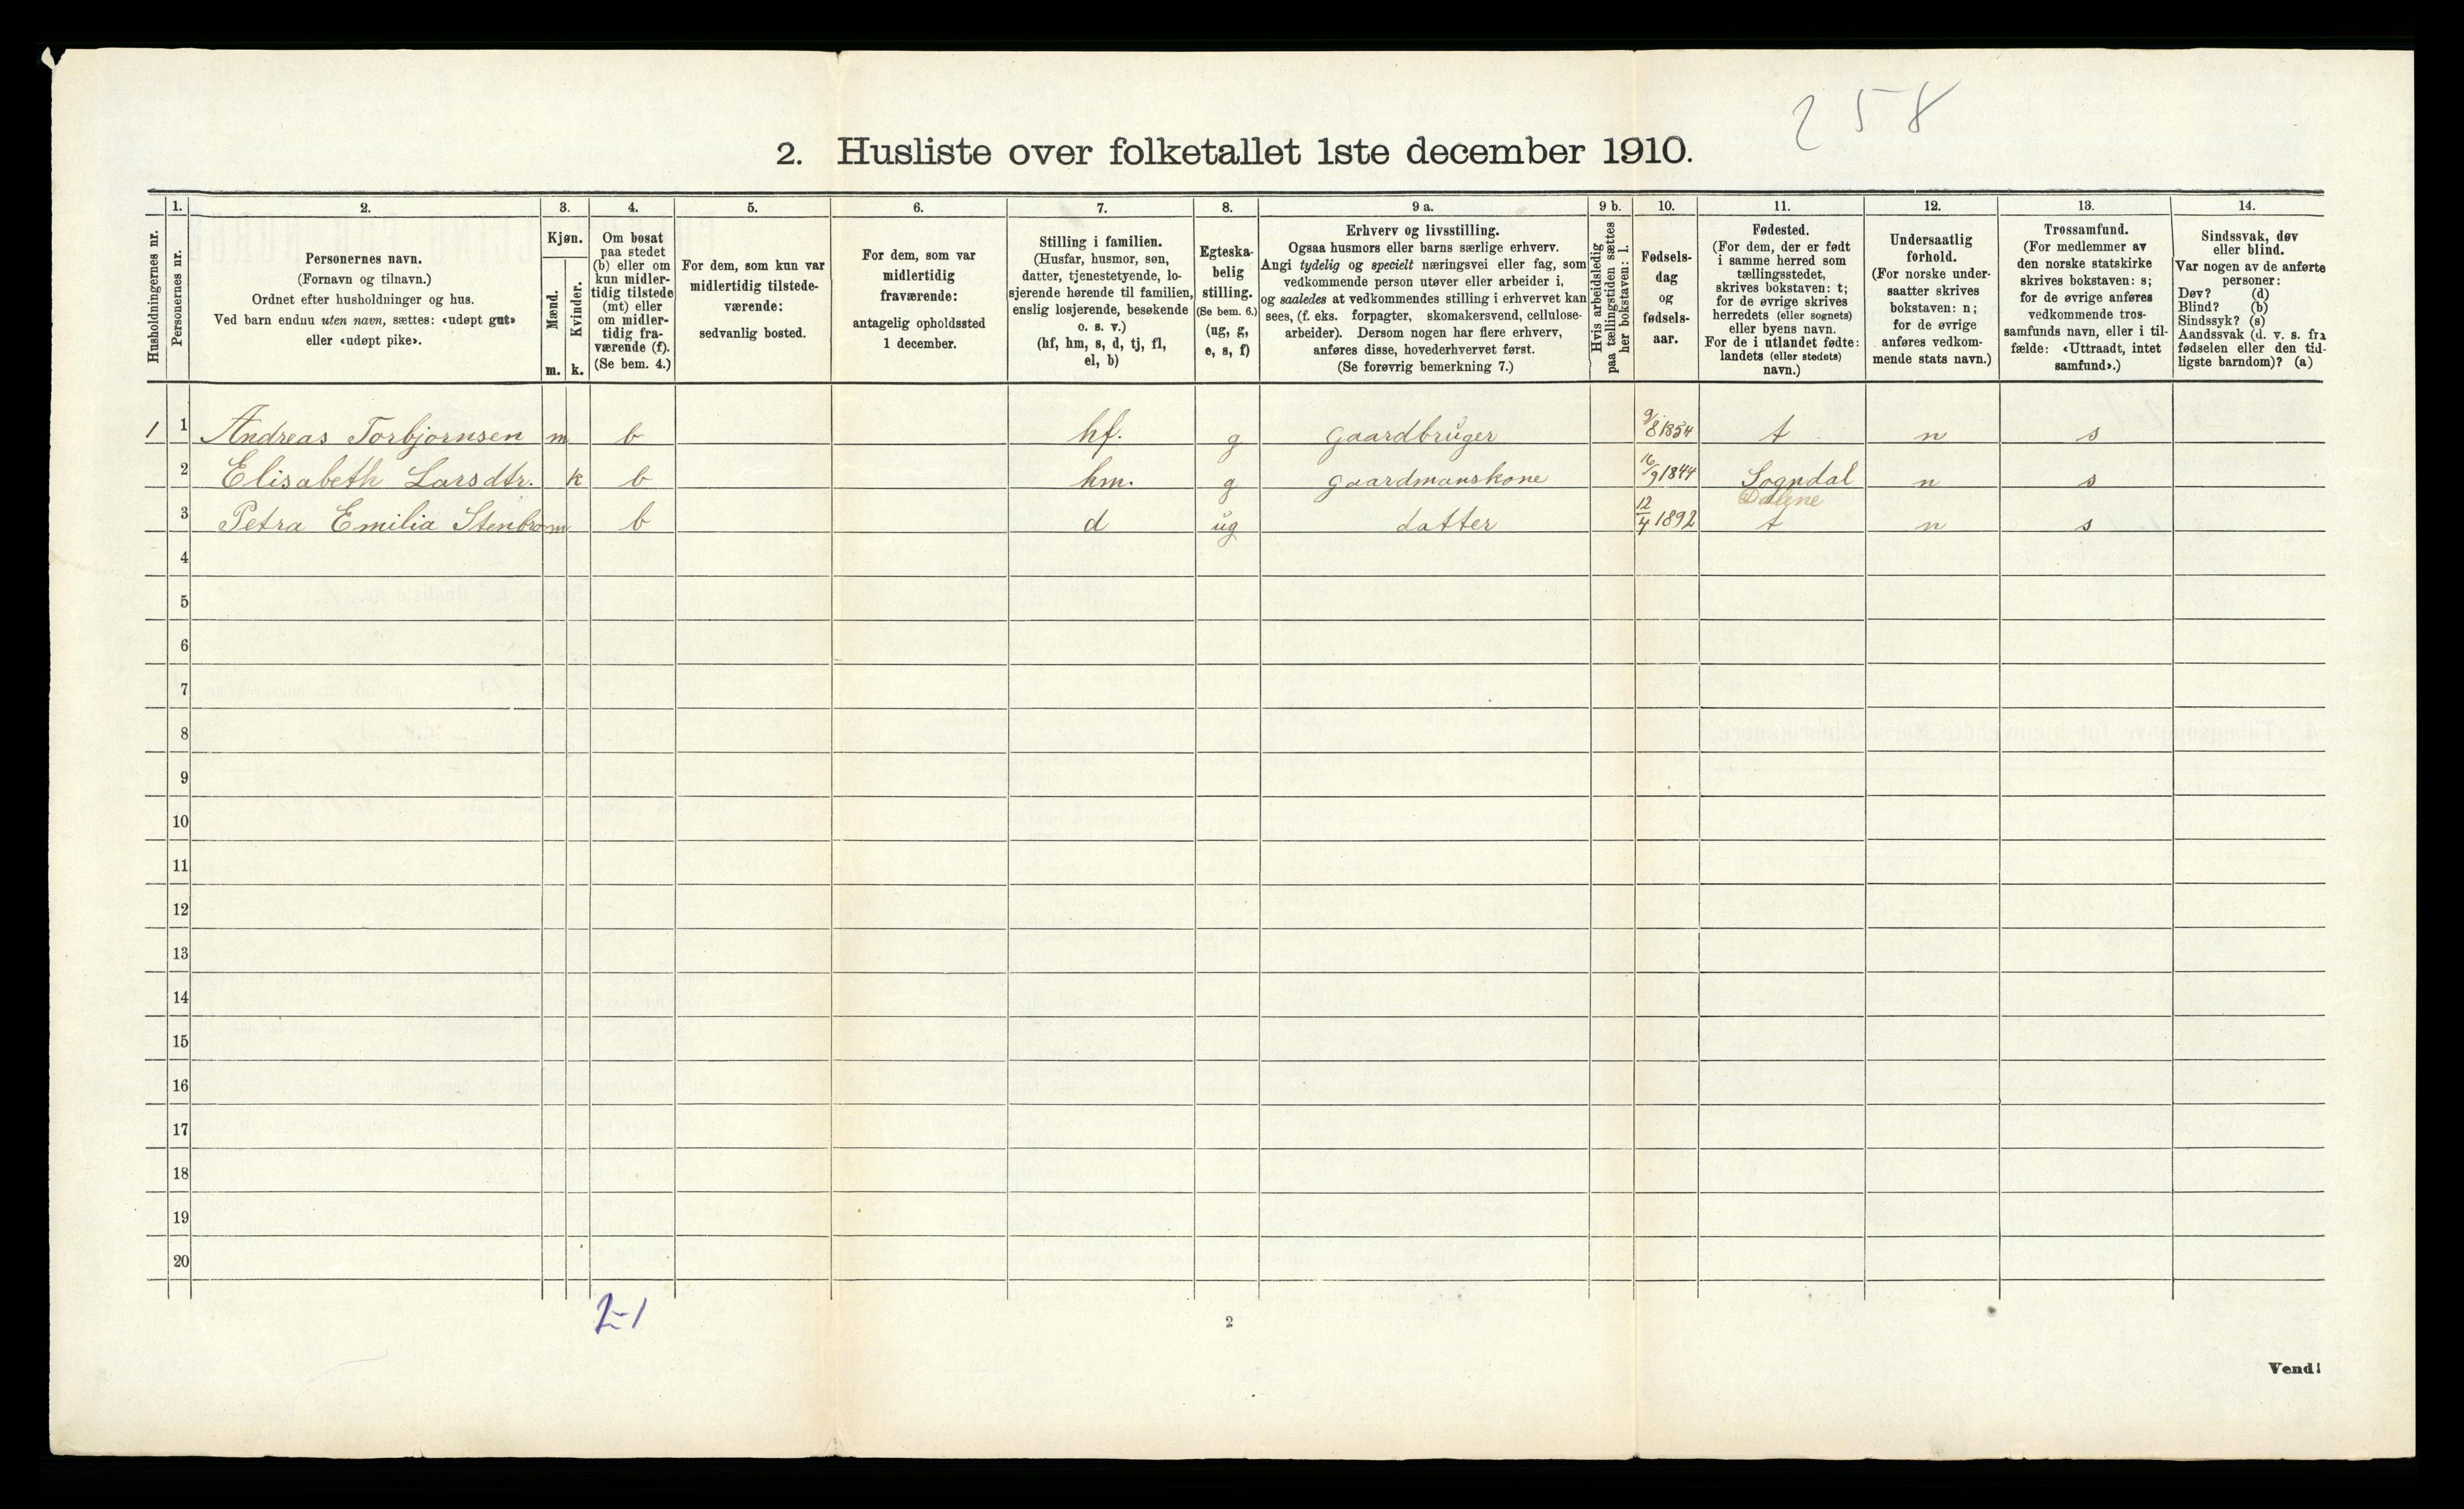 258
2. Husliste over folketallet 1ste december 1910.
Husholdningernes nr.
1.
Personernes nr.
2.
Personernes navn.
(Fornavn og tilnavn.)
Ordnet efter husholdninger og hus.
Ved barn endnu uten navn, sættes: «udøpt gut»
eller «udøpt pike».
3.
Kjøn.
Mænd.
Kvinder.
m. k.
4.
Om bosat
paa stedet
(b) eller om
kun midler-
tidig tilstede
(mt) eller
om midler-
tidig fra-
værende (f).
(Se bem. 4.)
5.
For dem, som kun var
midlertidig tilstede-
værende:
sedvanlig bosted.
6.
For dem, som var
midlertidig
fraværende:
antagelig opholdssted
1 december.
7.
Stilling i familien.
(Husfar, husmor, søn,
datter, tjenestetyende, lo-
sjerende hørende til familien,
enslig losjerende, besøkende
o. s. v.)
(hf, hm, s, d, tj, fl,
el, b)
8.
Egteska-
belig
stilling.
(Se bem. 6.)
(ug, g,
e, s, f)
9 a.
Erhverv og livsstilling.
Ogsaa husmors eller barns særlige erhverv.
Angi tydelig og specielt næringsvei eller fag, som
vedkommende person utøver eller arbeider i,
og saaledes at vedkommendes stilling i erhvervet kan
sees, (f. eks. forpagter, skomakersvend, cellulose-
arbeider). Dersom nogen har flere erhverv,
anføres disse, hovederhvervet først.
(Se forøvrig bemerkning 7.)
9 b.
Hvis arbeidsledig
paa tællingstiden sættes
her bokstaven: l.
10.
Fødsels-
dag
og
fødsels-
aar.
11.
Fødested.
(For dem, der er født
i samme herred som
tællingsstedet,
skrives bokstaven: t;
for de øvrige skrives
herredets (eller sognets)
eller byens navn.
For de i utlandet fødte:
landets (eller stedets)
navn.)
12.
Undersaatlig
forhold.
(For norske under-
saatter skrives
bokstaven: n;
for de øvrige
anføres vedkom-
mende stats navn.)
13.
Trossamfund.
(For medlemmer av
den norske statskirke
skrives bokstaven: s;
for de øvrige anføres
vedkommende tros-
samfunds navn, eller i til-
fælde: «Uttraadt, intet
samfund».)
14.
Sindssvak, døv
eller blind.
Var nogen av de anførte
personer:
Døv? (d)
Blind? (b)
Sindssyk? (s)
Aandssvak (d. v. s. fra
fødselen eller den tid-
ligste barndom)? (a)
1 1 Andreas Torbjørnsen m b hf. g gaardbruger 9/8 1854 t n s
2 Elisabeth Larsdtr. k b hm. g gaardmanskone 16/9 1844 Sogndal n s
Dalene
3 Petra Emilia Stenbro m b d ug datter 12/4 1892 t n s
4
5
6
7
8
9
10
11
12
13
14
15
16
17
18
19
20
2-1
2
Vend!